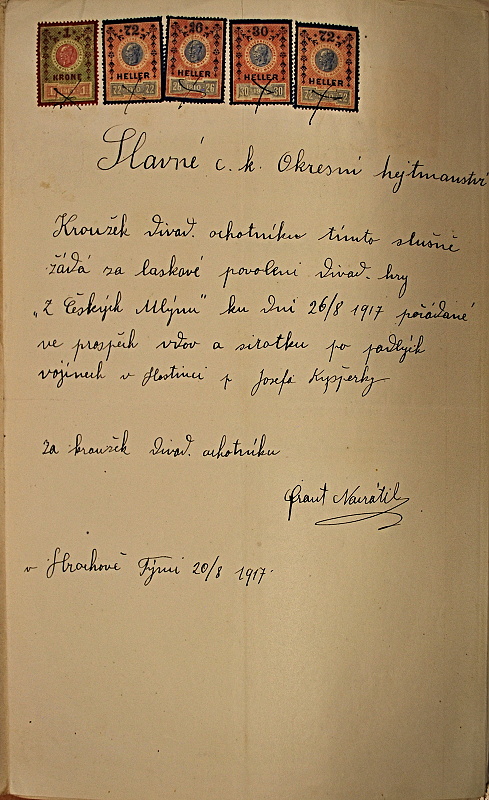 1 72 26 30 72
KRONE HELLER HELLER HELLER HELLER
Slavné c. k. Okresní hejtmanství
Kroužek divad. ochotníku tímto slušně
žádá za laskavé povolení divad. hry
„Z Českých Mlýnů" ku dni 26/8 1917 pořádané
ve prospěch vdov a sirotku po padlých
vojínech v Hostinci p Josefa Kyšperky
Za kroužek divad. ochotníku
Frant Navrátil
v Hrachově Týnci 20/8 1917.